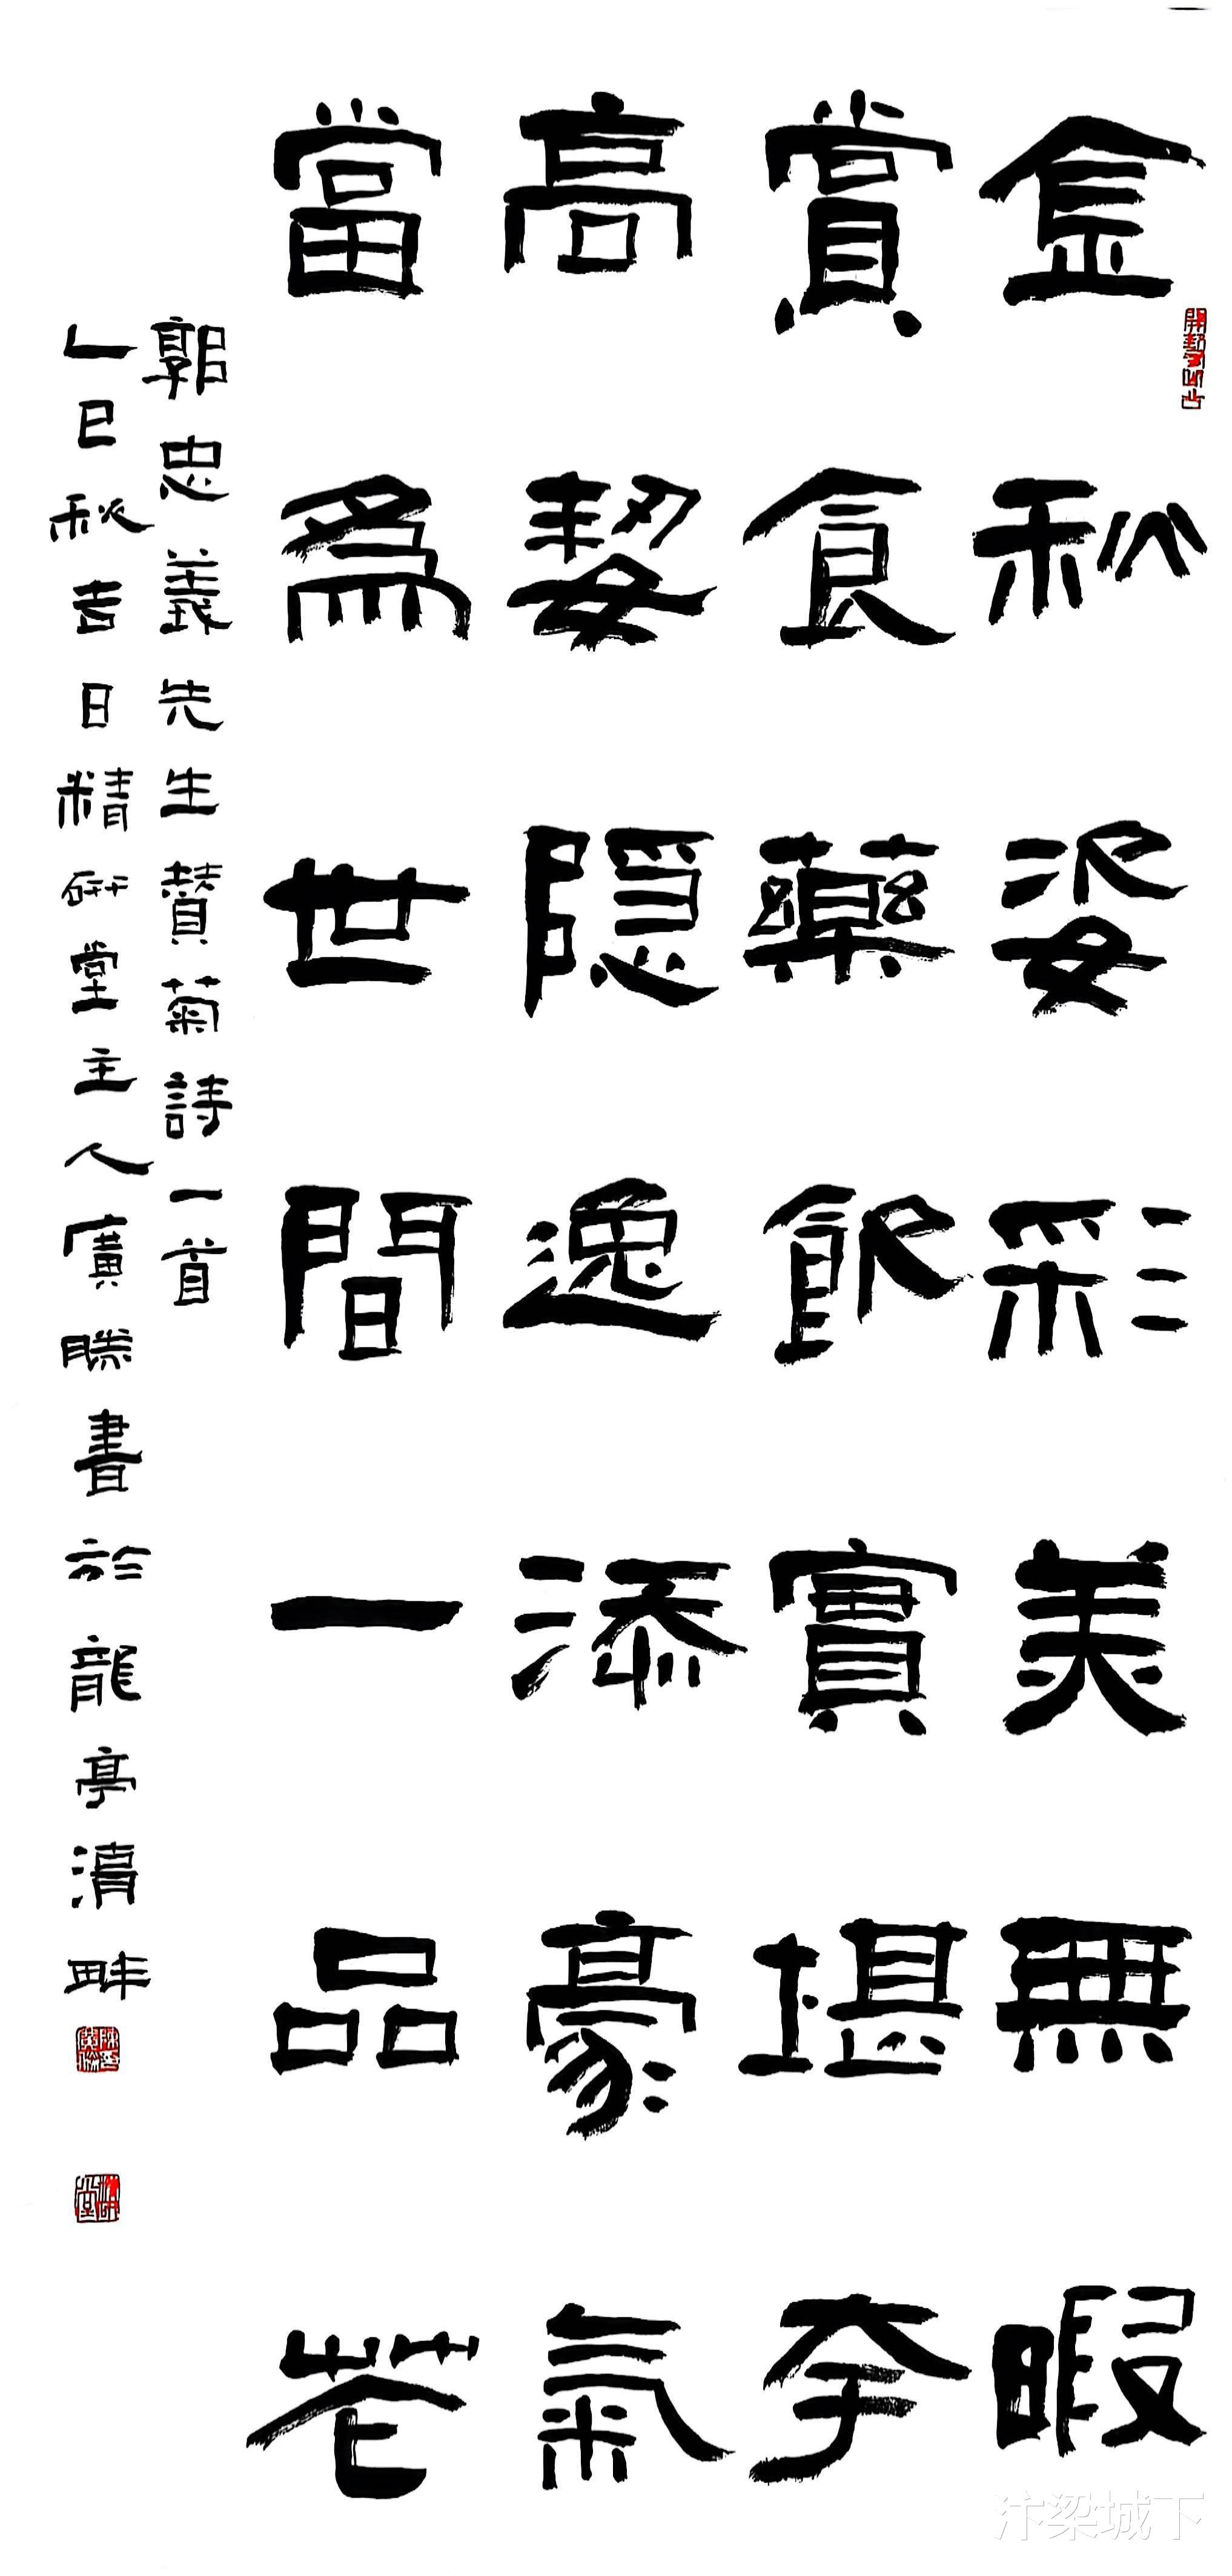 金秋姿彩美無暇
賞食藥飲實堪夸
高㛃隐逸添豪氣
當爲世間一品花
郭忠義先生贊菊詩一首
乙巳秋吉日精研堂主人廣勝書於龍亭湖畔
汴梁城下